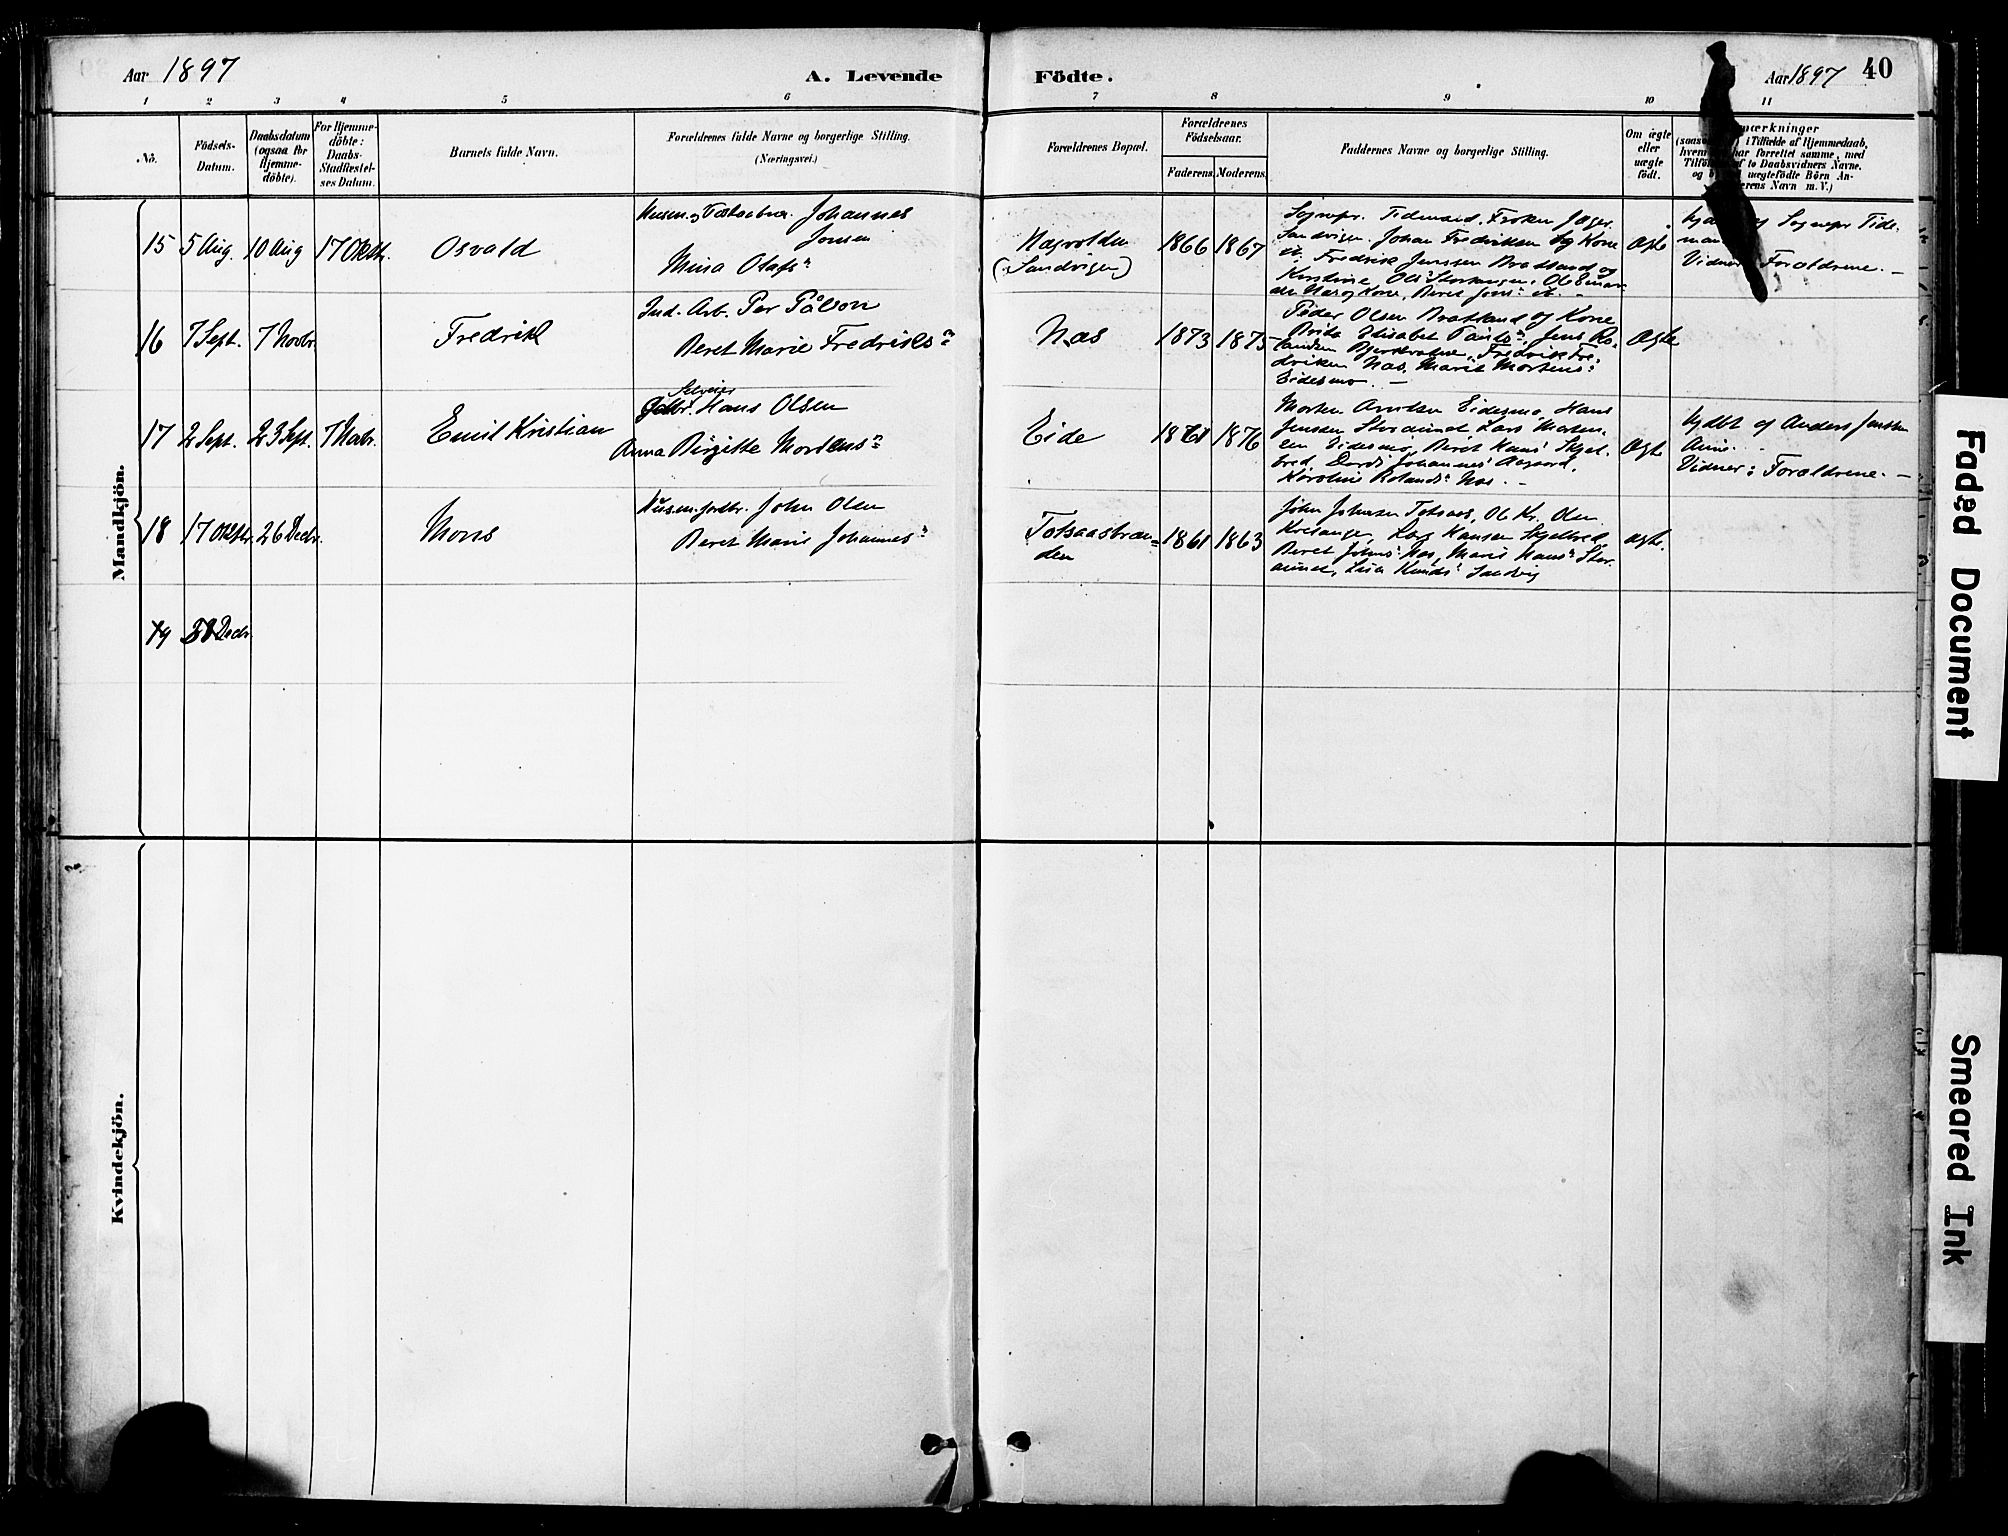 Aar 1897
A. Levende
Födte.
Aar 1897
40
1 2 3 4 5 6 7 8 9 10 11
No.
Födsels-
Datum.
Daabsdatum
(ogsaa for
Hjemme-
döbte).
For Hjemme-
döbte:
Daabs-
Stadfæstel-
ses Datum.
Barnets fulde Navn.
Forældrenes fulde Navne og borgerlige Stilling.
(Næringsvei.)
Forældrenes Bopæl.
Forældrenes
Födselsaar.
Faderens. Moderens.
Faddernes Navne og borgerlige Stilling.
Om ægte
eller
uægte
födt.
mærkninger
i Tilfælde af Hjemmedaab,
har forrettet samme, med
to Daabsvidners Navne.
og uægtefödte Börn An-
Navn m. V.)
Mandkjön.
15 5 Aug. 10 Aug 17 Oktbr. Osvald
Johannes
Jonsen
Mina Olafsn
Nagvolden
(Sandvigen)
1866 1867
Sognepr. Tidemand, Frøken Jæger
Sandvigen. Johan Fredriksen og Kone
Fredrik Jenssen Bratland og
Kristine
Ægte
og Sognepr. Tide-
man
Vidner: Forældrene. –
16 7 Sept. 7 Novbr. Fredrik
Ind. Arb. Per Pålson
Beret Marie Fredriksn
Næs
1873 1875
Peder Olsen Bratland og Kone
Jens Ro-
Fredrik Fre-
driksen Næs, Marit Mortens
Eidesmo. –
Ægte
17 2 Sept. 23 Sept. 7 Novbr. Emil Kristian
Selveier
Gdbr. Hans Olsen
Anna Birgitte Mortensn
Eide
1861 1876
Morten Arntsen Eidesmo, Hans
Jenssen Storaunet Lars Morten-
sen Eidesmo, Beret Hans Skjel-
bred, Dordi Johannes Aagaard,
Karoline Rolands Næs. –
Ægte
hjdbt af Anders Jenssen
Vidner: Forældrene. –
18 17 Oktbr. 26 Decbr. Mons
Husm. jordbr. John Olsen
Beret Marie Johannes
Totsaasbræn-
den
1861 1863
John Johnsen Totsaas, Ol Kr. Olsen
Lars Hansen Skjelbred
Beret Johns Næs, Marie Hans Stor-
aunet, Lisa Sandvig
ægte.
19 Decbr.
Kvindekjön.
Faded Document
Smeared Ink